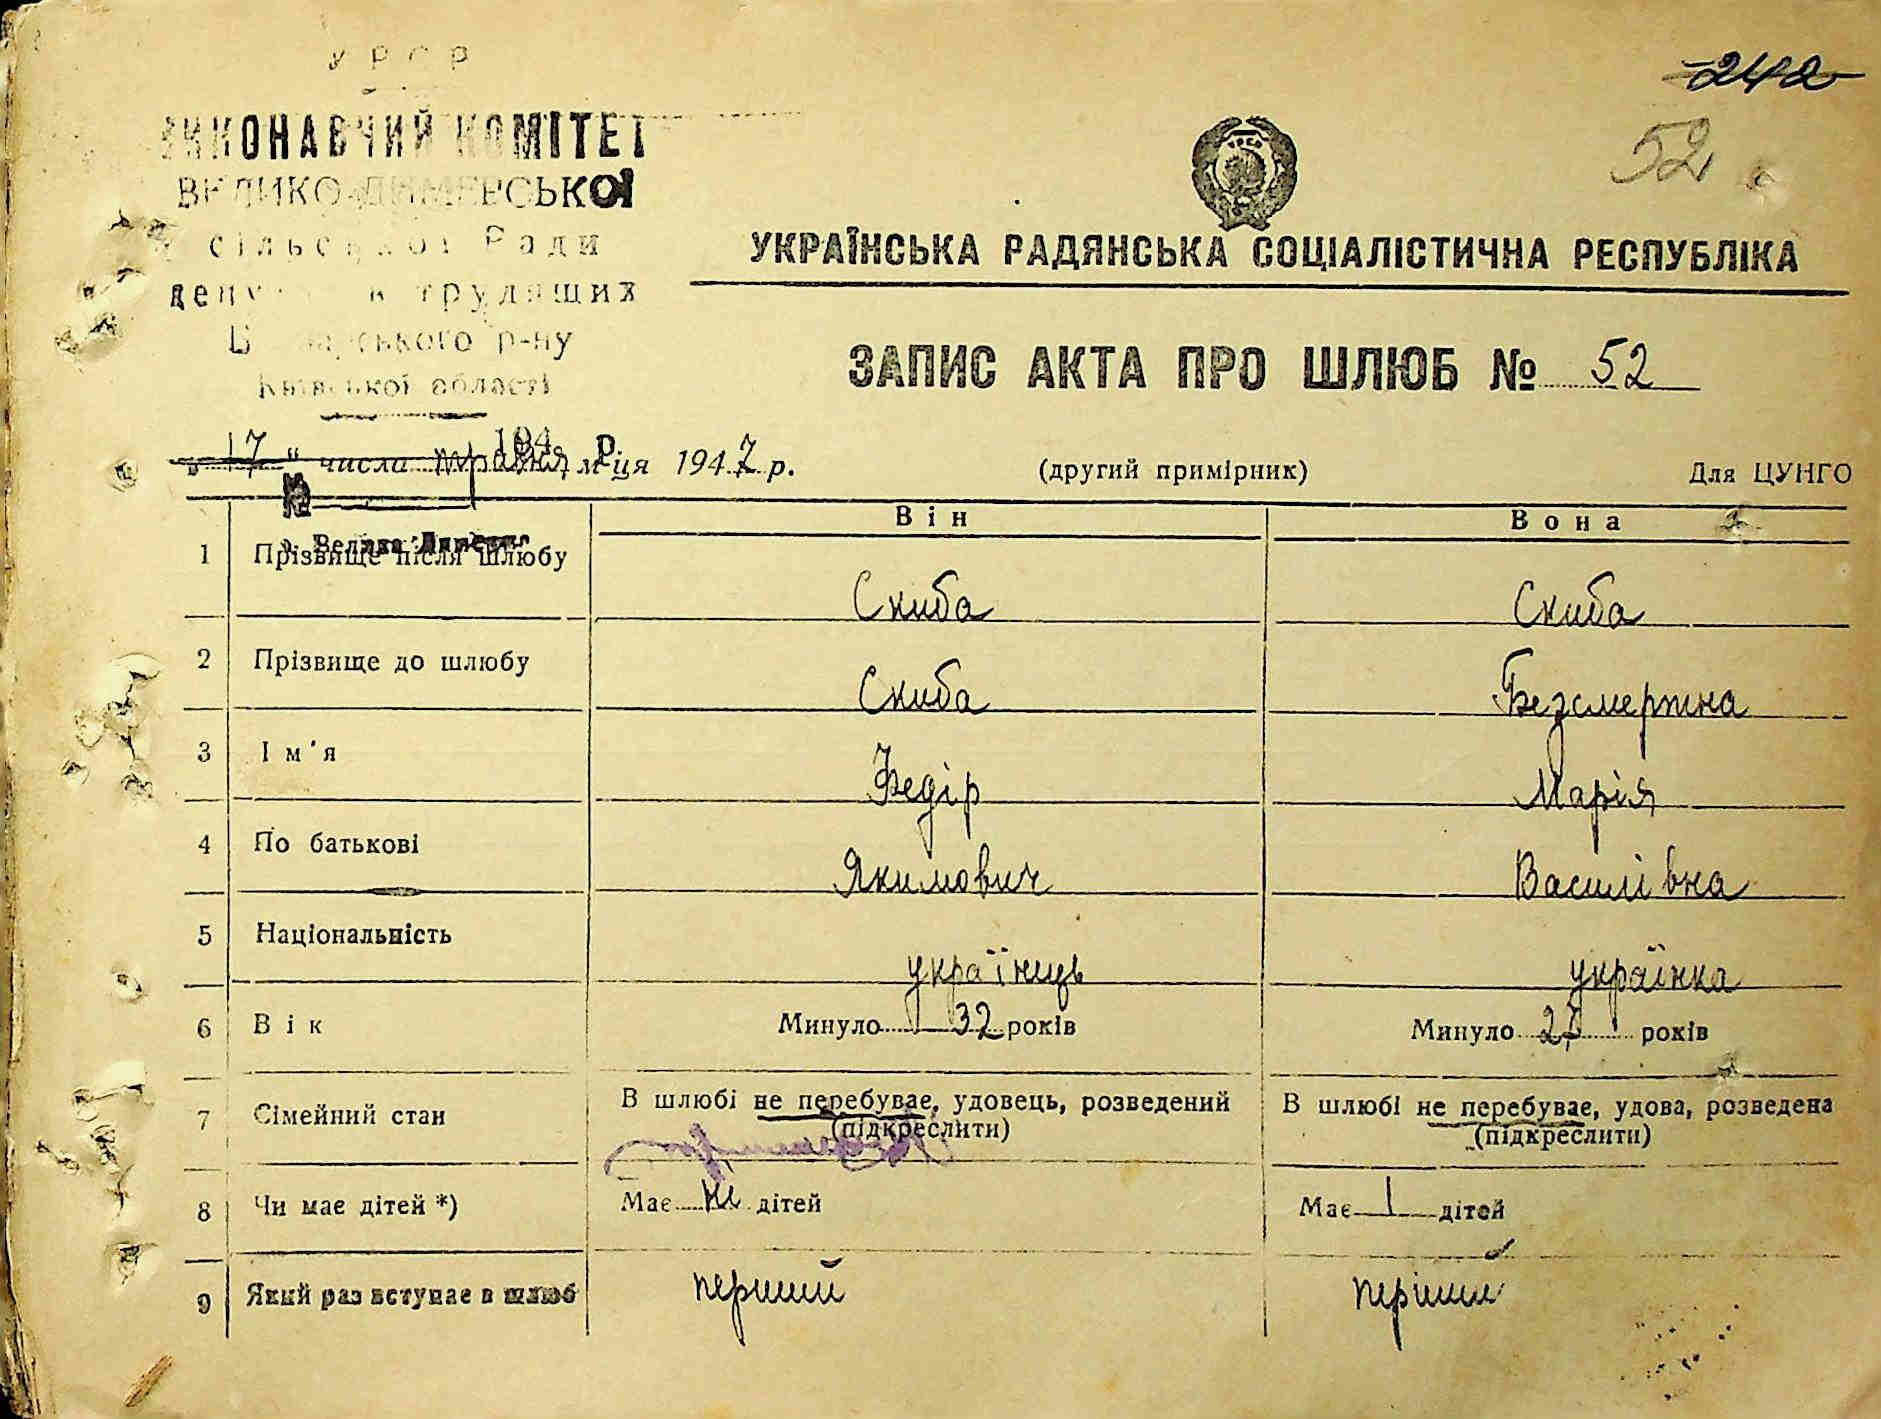 УРСР
-242-
ВИКОНАВЧИЙ КОМІТЕТ
52
ВЕЛИКО-ДИМЕРСЬКОЇ
УРСР
сільської Ради
УКРАЇНСЬКА РАДЯНСЬКА СОЦІАЛІСТИЧНА РЕСПУБЛІКА
депутатів трудящих
р-ну
Київської області
ЗАПИС АКТА ПРО ШЛЮБ № 52
194 р.
„17" числа травня м-ця 1947 р.
(другий примірник)
Для ЦУНГО
№
с. Велика Димерка
Він
Вона
1 Прізвище після шлюбу Скиба Скиба
2 Прізвище до шлюбу Скиба Безсмертна
3 Ім'я Федір Марія
4 По батькові Якимович Василівна
5 Національність українець українка
6 Вік Минуло 32 років Минуло 27 років
7 Сімейний стан В шлюбі не перебуває, удовець, розведений (підкреслити) В шлюбі не перебуває, удова, розведена (підкреслити)
8 Чи має дітей *) Має ні дітей Має 1 дітей
9 Який раз вступає в шлюб перший перший